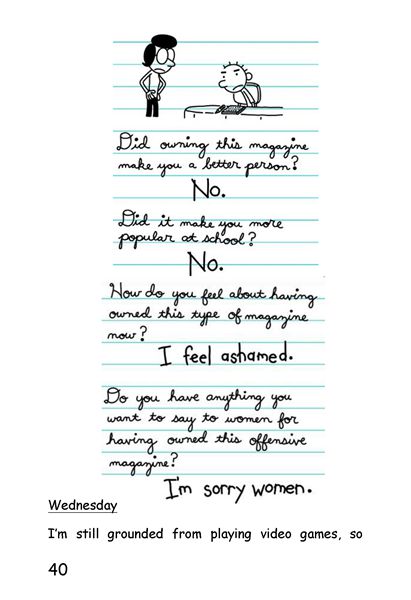 Did owning this magazine
make you a better person?
No.
Did it make you more
popular at school?
No.
How do you feel about having
owned this type of magazine
now?
I feel ashamed.
Do you have anything you
want to say to women for
having owned this offensive
magazine?
I'm sorry women.
Wednesday
I'm still grounded from playing video games, so
40